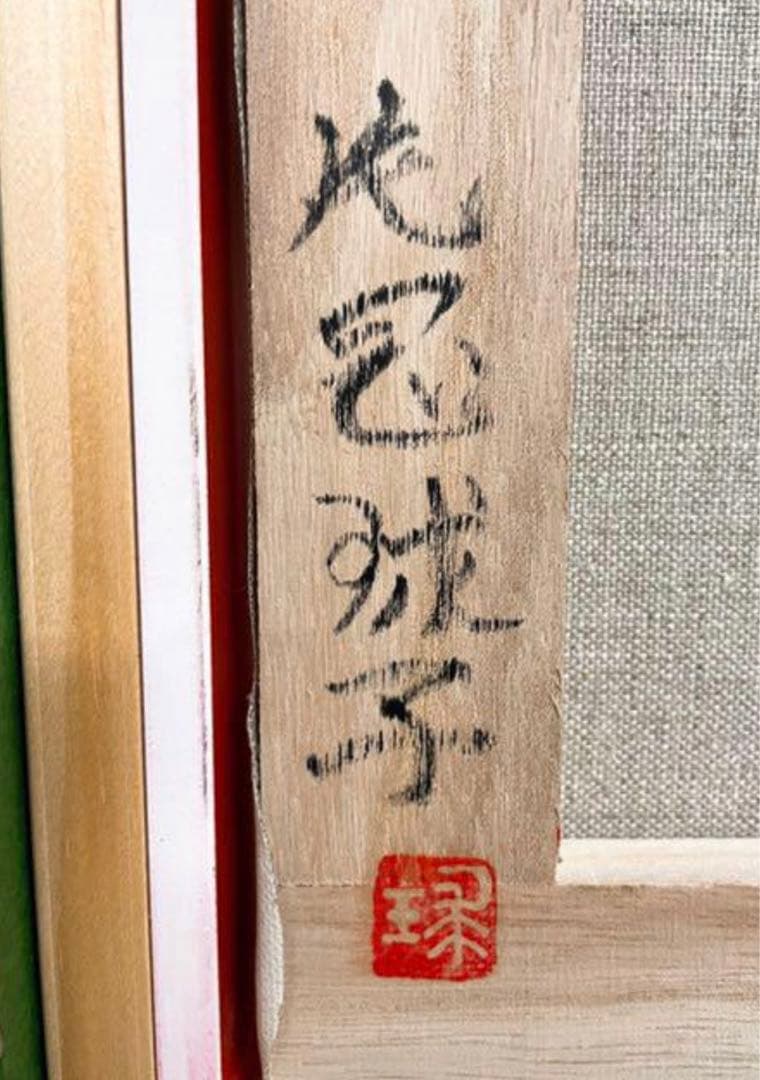 片岡球子
球